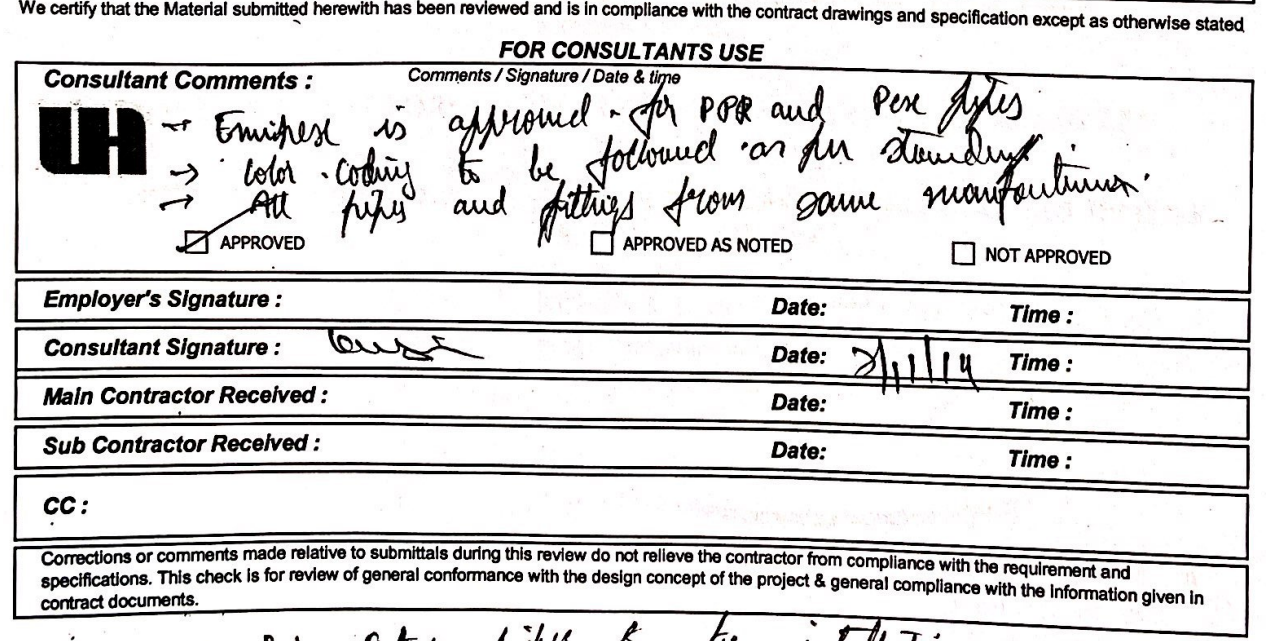 We certify that the Material submitted herewith has been reviewed and is in compliance with the contract drawings and specification except as otherwise stated
FOR CONSULTANTS USE
Consultant Comments :
Comments / Signature / Date & time
UH
→ is approved for PPR and Pex pipes
→ Color coding to be followed as per standard.
→ All pipes and fittings from same manufacturer.
APPROVED
APPROVED AS NOTED
NOT APPROVED
Employer's Signature : Date: Time :
Consultant Signature : Date: 2/11/14 Time :
Main Contractor Received : Date: Time :
Sub Contractor Received : Date: Time :
CC :
Corrections or comments made relative to submittals during this review do not relieve the contractor from compliance with the requirement and
specifications. This check is for review of general conformance with the design concept of the project & general compliance with the Information given in
contract documents.